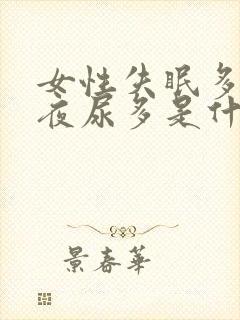 女性失眠多
夜尿多是什
景春華